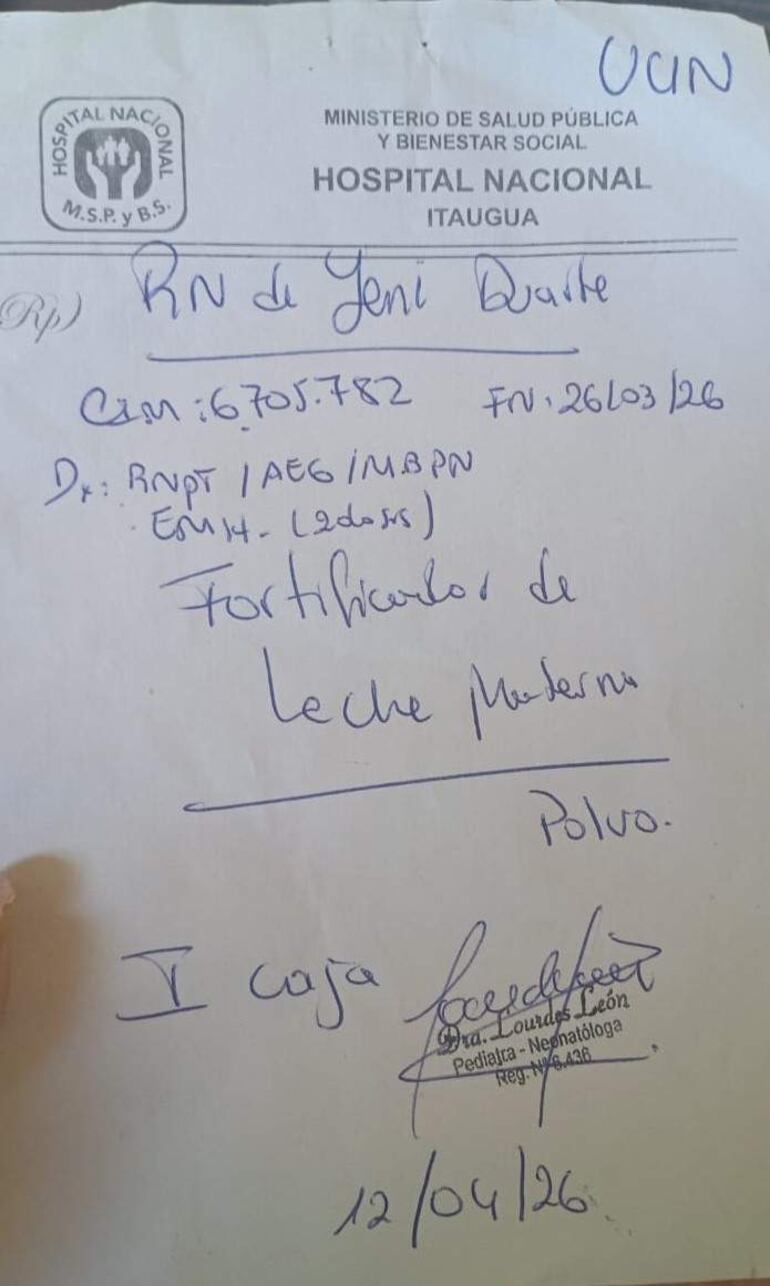 UCIN
HOSPITAL NACIONAL
M.S.P. y B.S.
MINISTERIO DE SALUD PÚBLICA
Y BIENESTAR SOCIAL
HOSPITAL NACIONAL
ITAUGUA
Rp)
RN de Yeni Duarte
CIM: 6.705.782 FN: 26/03/26
Dx: RNPT / AEG / MBPN
EMH - (2 dosis)
Fortificador de
Leche Materna
Polvo.
I caja
Dra. Lourdes León
Pediatra - Neonatóloga
Reg. Nº 6.436
12/04/26